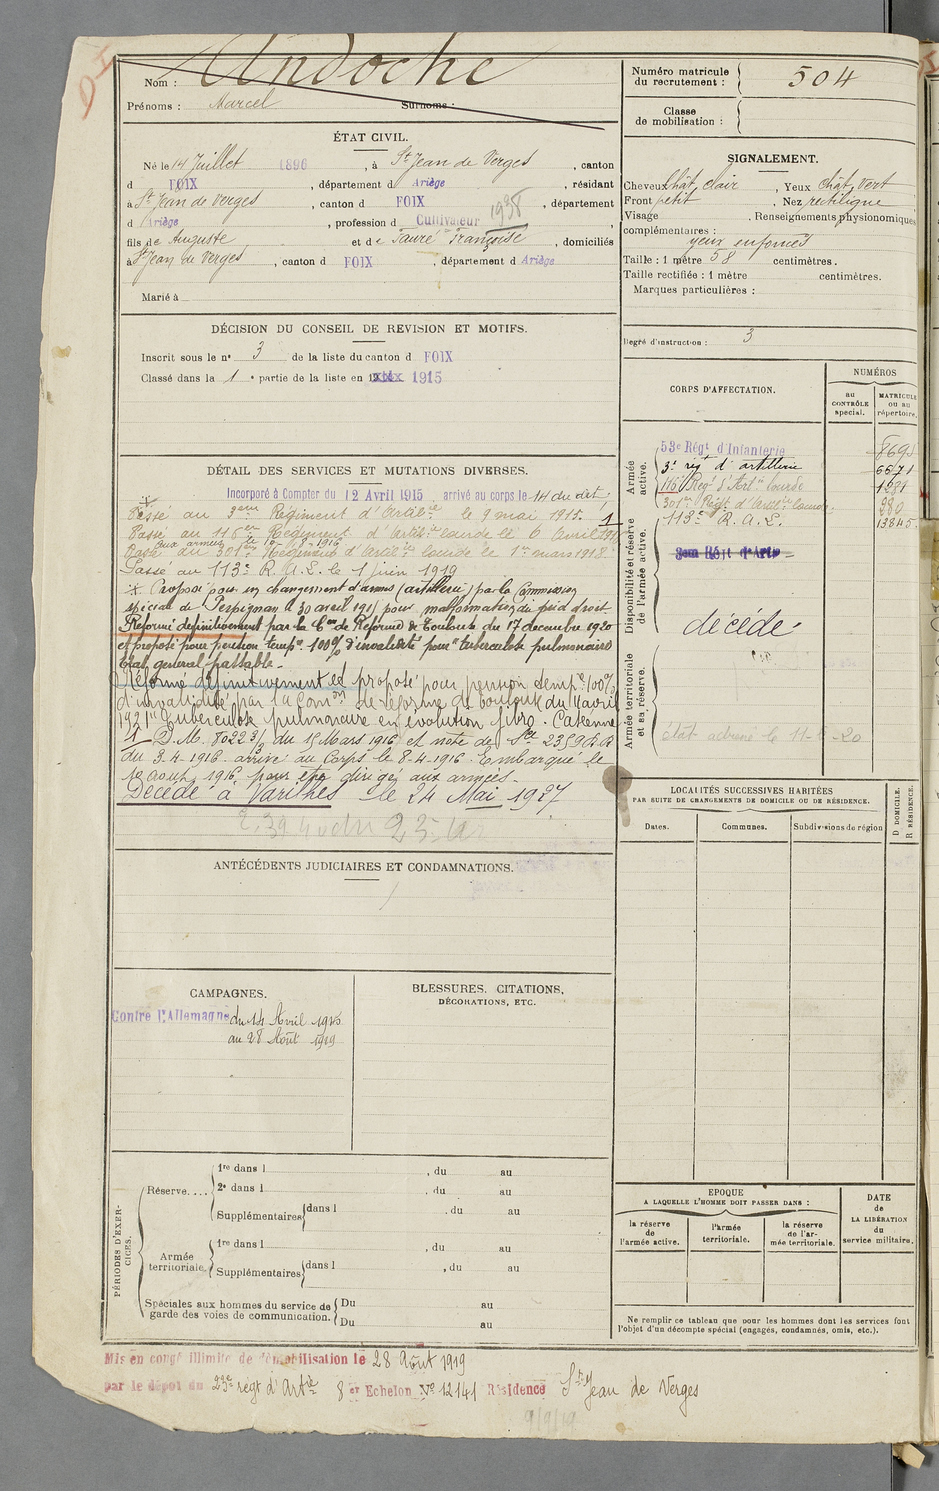 Nom : Andoche
Prénoms : Marcel Surnoms :
ÉTAT CIVIL.
Né le 14 Juillet 1896, à St Jean de Verges, canton
d FOIX, département d Ariège, résidant
à St Jean de Verges, canton d FOIX, département
d Ariège, profession d Cultivateur 1938
fils de Auguste et de Faure Françoise, domiciliés
à St Jean de Verges, canton d FOIX, département d Ariège
Marié à
DÉCISION DU CONSEIL DE REVISION ET MOTIFS.
Inscrit sous le n° 3 de la liste du canton d FOIX
Classé dans la 1e partie de la liste en 1915
DÉTAIL DES SERVICES ET MUTATIONS DIVERSES.
Incorporé à Compter du 12 Avril 1915, arrivé au corps le 14 du dit,
Passé au 3eme Régiment d'Artilie le 9 mai 1915. 1
Passé au 116e Régiment d'Artilie lourde le 6 avril
aux armées le 10-8-1916
Passé au 301e Régiment d'Artilie lourde le 1er mars 1918.
Passé au 113e R.A.L. le 1 juin 1919
* Proposé pour un changement d'arme (artillerie) par la Commission
spéciale de Perpignan le 30 avril 1915 pour malformation du pied droit
Réformé définitivement par la Con de Réforme de Toulouse du 17 decembre 1920
et proposé pour pension tempre 100% d'invalidité pour tuberculose pulmonaire
Etat général passable.
Réformé définitivement et proposé pour pension tempre 100%
d'invalidité par la Comon de réforme de Toulouse du avril
1921 "Tuberculose pulmonaire en évolution fibro-Caséeuse
1 D.M. 80223/3 du 15 Mars 1916 et note de Sce 2359 R.A
du 3-4-1916. arrivé au Corps le 8-4-1916. Embarqué le
10 aout 1916 pour être dirigé aux armées.
Décédé à Varilhes le 24 Mai 1927
ANTÉCÉDENTS JUDICIAIRES ET CONDAMNATIONS.
CAMPAGNES.
Contre l'Allemagne du 14 Avril 1915
au 28 Août 1919
BLESSURES, CITATIONS,
DÉCORATIONS, ETC.
PÉRIODES D'EXERCICES.
Réserve....
1re dans l , du au
2e dans l , du au
Supplémentaires dans l , du au
Armée territoriale.
1re dans l , du au
Supplémentaires dans l , du au
Spéciales aux hommes du service de
garde des voies de communication.
Du au
Du au
Mis en congé illimité de démobilisation le 28 Août 1919
par le dépôt du 23e régt d'Artie 8er Echelon No 12141 Résidence St Jean de Verges
9/9/19
Numéro matricule
du recrutement : 504
Classe
de mobilisation :
SIGNALEMENT.
Cheveux chât. clair, Yeux chât. vert
Front petit, Nez rectiligne
Visage . Renseignements physionomiques
complémentaires :
yeux enfoncés
Taille : 1 mètre 58 centimètres.
Taille rectifiée : 1 mètre centimètres.
Marques particulières :
Degré d'instruction : 3
CORPS D'AFFECTATION.
NUMÉROS
au
CONTRÔLE
spécial.
MATRICULE
ou au
répertoire.
Armée
active.
53e Régt d'Infanterie
3e régt d'artillerie 6671
116e Régt d'Artie lourde 1681
301e Régt d'Artilie lourde 280
113e R.A.L. 13845
Disponibilité et réserve
de l'armée active.
décédé
Armée territoriale
et sa réserve.
LOCALITÉS SUCCESSIVES HABITÉES
PAR SUITE DE CHANGEMENTS DE DOMICILE OU DE RÉSIDENCE.
Dates.
Communes.
Subdivisions de région
D. DOMICILE.
R. RÉSIDENCE.
EPOQUE
A LAQUELLE L'HOMME DOIT PASSER DANS :
la réserve
de
l'armée active.
l'armée
territoriale.
la réserve
de l'ar-
mée territoriale.
DATE
de
LA LIBÉRATION
du
service militaire.
Ne remplir ce tableau que pour les hommes dont les services font
l'objet d'un décompte spécial (engagés, condamnés, omis, etc.).